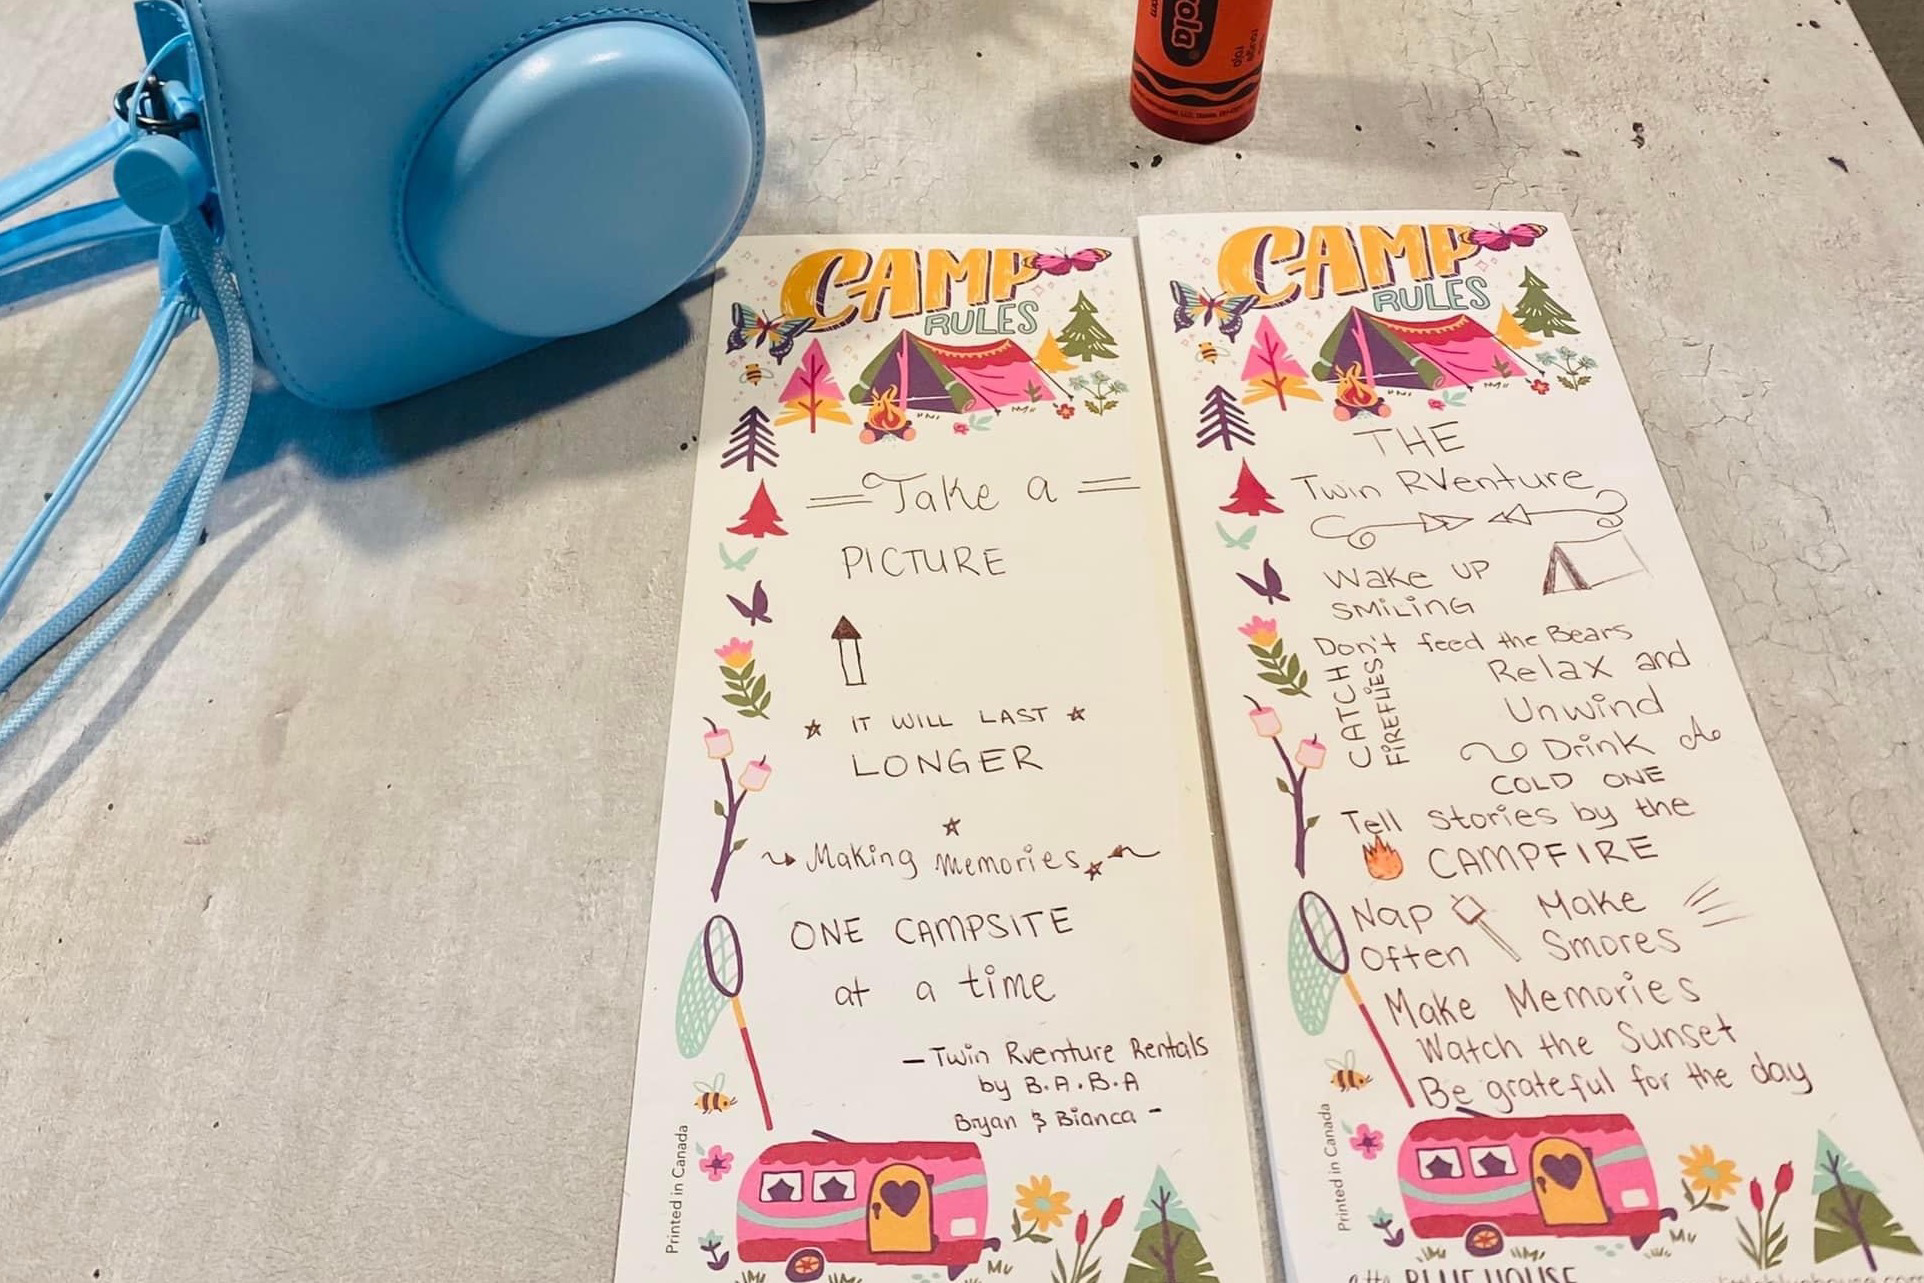 CAMP
RULES
Take a
PICTURE
IT WILL LAST
LONGER
Making memories
ONE CAMPSITE
at a time
- Twin Rventure Rentals
by B.A.B.A
Bryan & Bianca -
Printed in Canada
CAMP
RULES
THE
Twin RVenture
Wake UP
SMiLiNG
Don't feed the Bears
CATCH
FiREFLiES
Relax and
Unwind
Drink
COLD ONE
Tell Stories by the
CAMPFIRE
Nap
Often
Make
Smores
Make Memories
Watch the Sunset
Be grateful for the day
Printed in Canada
BLUE HOUSE